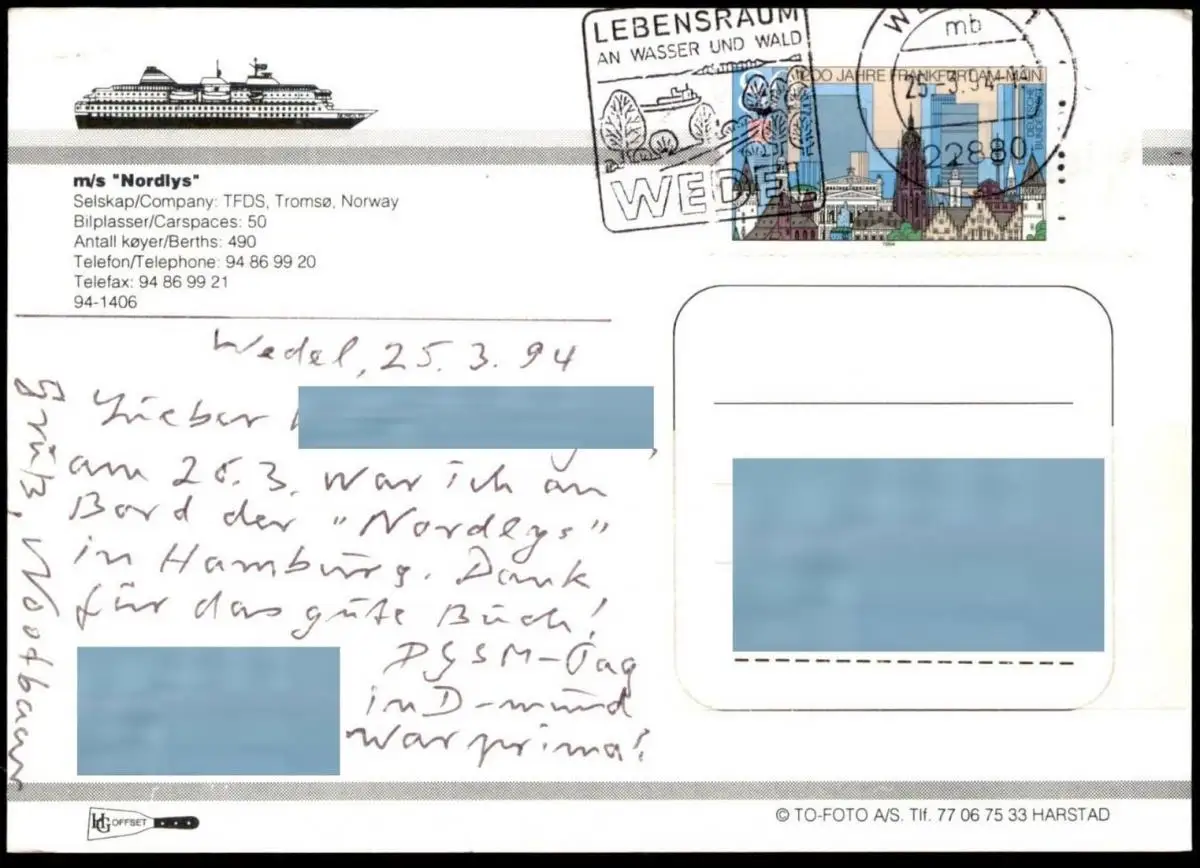 LEBENSRAUM
AN WASSER UND WALD
WEDEL
mb
25.-3.94
22880
1200 JAHRE FRANKFURT AM MAIN
DEUTSCHE
BUNDESPOST
1994
m/s "Nordlys"
Selskap/Company: TFDS, Tromsø, Norway
Bilplasser/Carspaces: 50
Antall køyer/Berths: 490
Telefon/Telephone: 94 86 99 20
Telefax: 94 86 99 21
94-1406
Wedel, 25. 3. 94
Lieber
am 25. 3. war ich an
Bord der "Nordlys"
in Hamburg. Dank
für das gute Buch!
DGSM-Tag
in D-mund
war prima!
Gruß,
HG OFFSET
© TO-FOTO A/S. Tlf. 77 06 75 33 HARSTAD